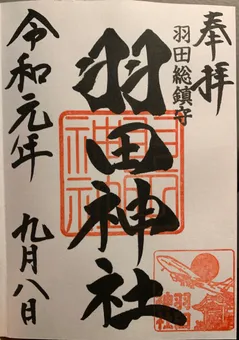 奉拝
羽田総鎮守
羽田神社
令和元年 九月八日
羽田神社